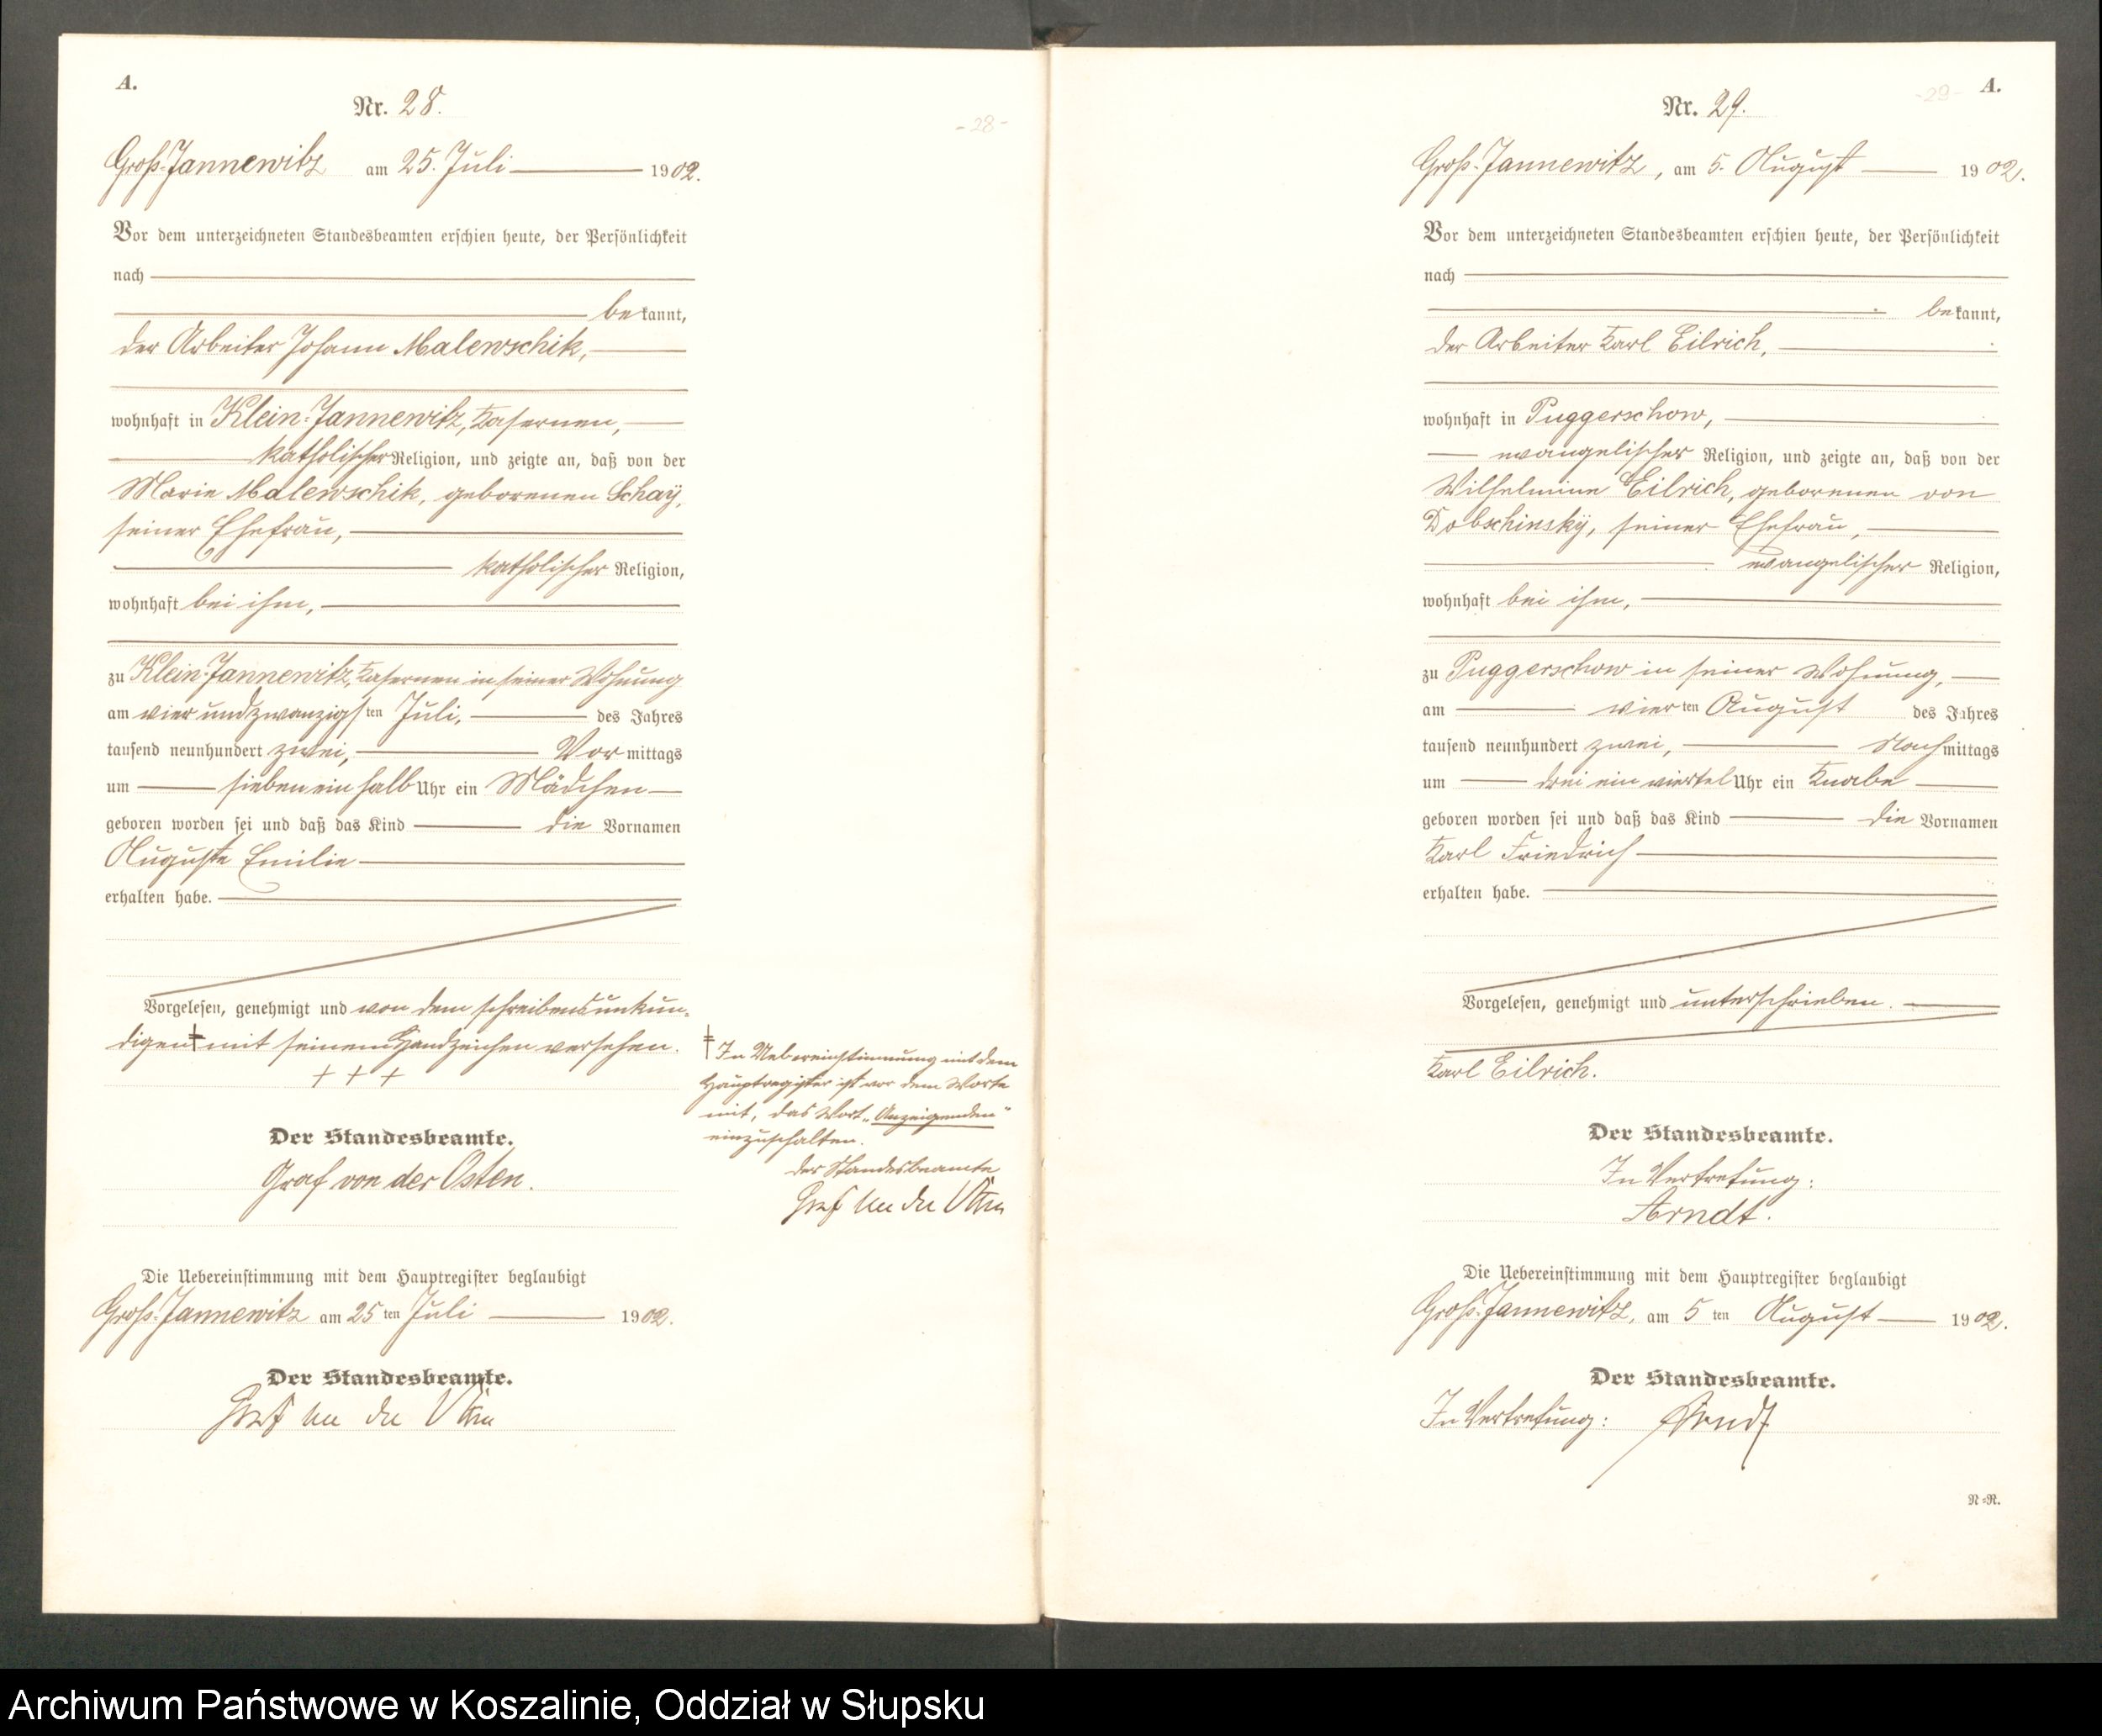 A.
Nr. 28.
- 28 -
Groß-Jannewitz am 25. Juli 1902.
Vor dem unterzeichneten Standesbeamten erschien heute, der Persönlichkeit
nach
bekannt,
der Arbeiter Johann Malewschik,
wohnhaft in Klein-Jannewitz, Kasernen,
katholischer Religion, und zeigte an, daß von der
Marie Malewschik, geborenen Schaÿ,
seiner Ehefrau,
katholischer Religion,
wohnhaft bei ihm,
zu Klein-Jannewitz, Kasernen in seiner Wohnung
am vierundzwanzigsten Juli, des Jahres
tausend neunhundert zwei, Vormittags
um sieben ein halb Uhr ein Mädchen
geboren worden sei und daß das Kind die Vornamen
Auguste Emilie
erhalten habe.
Vorgelesen, genehmigt und von dem schreibensunkun-
digen ‡ mit seinem Handzeichen versehen.
+ + +
‡ In Uebereinstimmung mit dem
Hauptregister ist vor dem Worte
mit, das Wort „Anzeigenden"
einzuschalten.
Der Standesbeamte
Graf von der Osten
Der Standesbeamte.
Graf von der Osten.
Die Uebereinstimmung mit dem Hauptregister beglaubigt
Groß-Jannewitz am 25ten Juli 1902.
Der Standesbeamte.
Graf von der Osten
-29- A.
Nr. 29.
Groß-Jannewitz, am 5. August 1902.
Vor dem unterzeichneten Standesbeamten erschien heute, der Persönlichkeit
nach
bekannt,
der Arbeiter Karl Eilrich,
wohnhaft in Puggerschow,
evangelischer Religion, und zeigte an, daß von der
Wilhelmine Eilrich, geborenen von
Dobschinskÿ, seiner Ehefrau,
evangelischer Religion,
wohnhaft bei ihm,
zu Puggerschow in seiner Wohnung,
am vierten August des Jahres
tausend neunhundert zwei, Nachmittags
um drei ein viertel Uhr ein Knabe
geboren worden sei und daß das Kind die Vornamen
Karl Friedrich
erhalten habe.
Vorgelesen, genehmigt und unterschrieben.
Karl Eilrich.
Der Standesbeamte.
In Vertretung:
Arndt.
Die Uebereinstimmung mit dem Hauptregister beglaubigt
Groß-Jannewitz, am 5ten August 1902.
Der Standesbeamte.
In Vertretung: Arndt
N=R.
Archiwum Państwowe w Koszalinie, Oddział w Słupsku